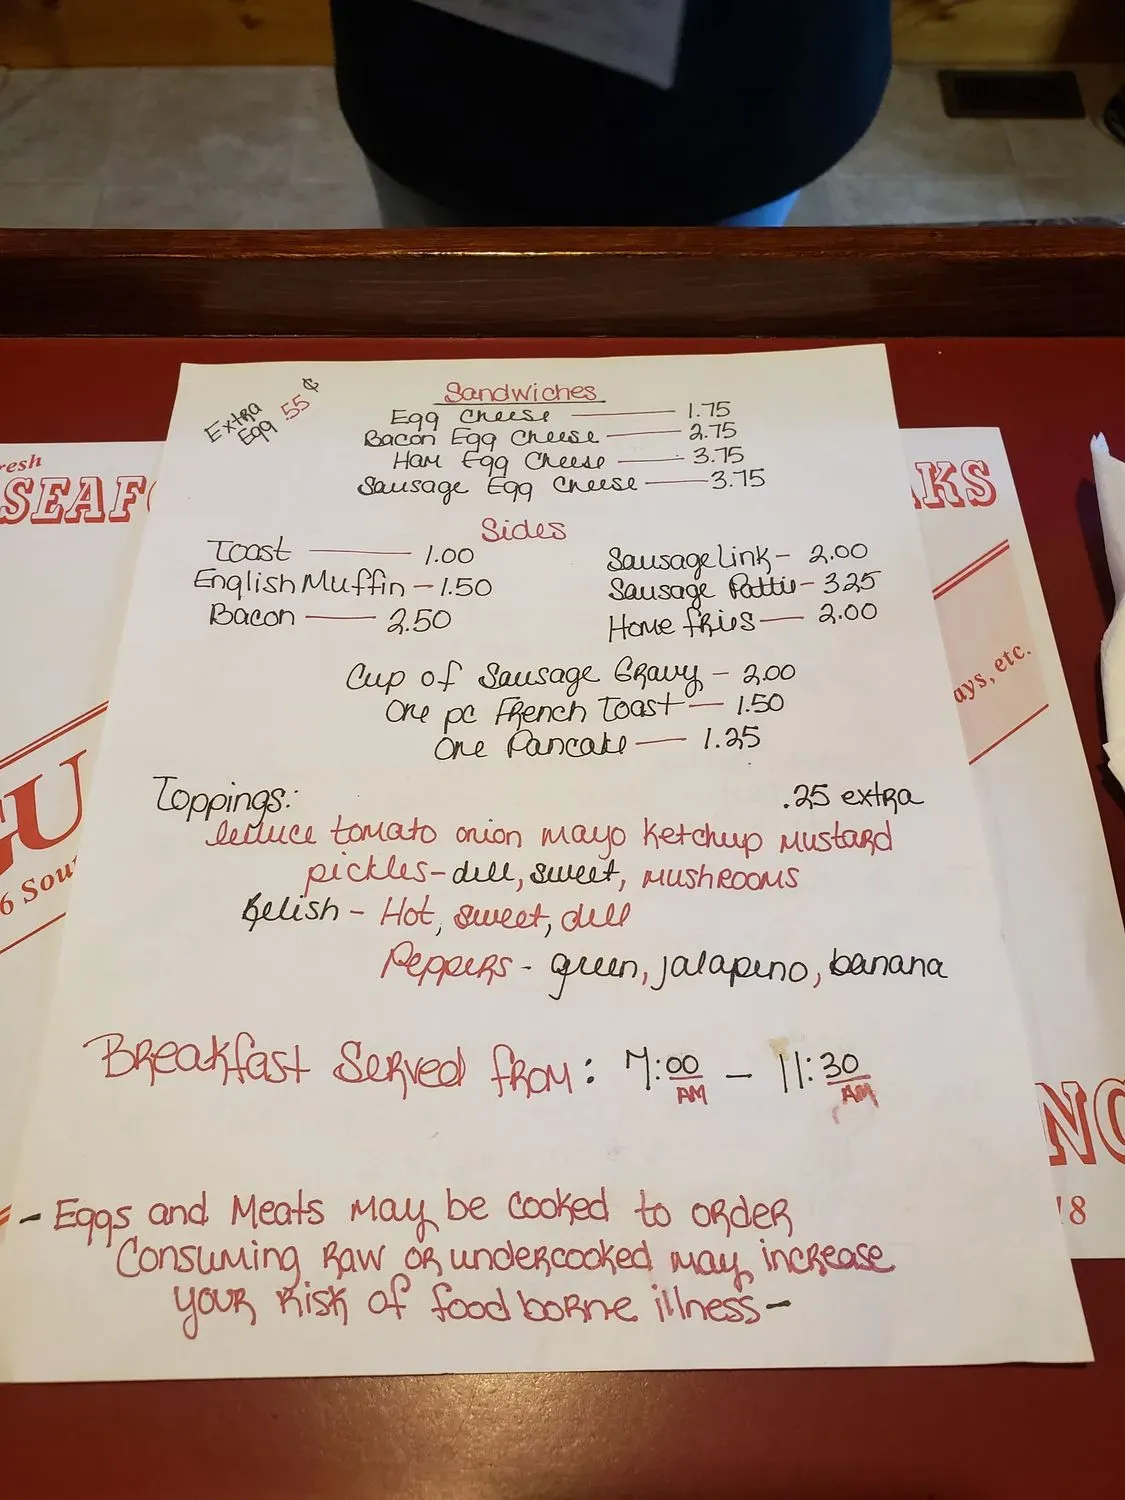 Extra
Egg .55¢
Sandwiches
Egg Cheese — 1.75
Bacon Egg Cheese — 2.75
Ham Egg Cheese — 3.75
Sausage Egg Cheese — 3.75
Sides
Toast — 1.00
English Muffin — 1.50
Bacon — 2.50
Sausage Link - 2.00
Sausage Pattie - 3.25
Home fries — 2.00
Cup of Sausage Gravy - 2.00
One pc French Toast — 1.50
One Pancake — 1.25
Toppings: .25 extra
lettuce tomato onion mayo Ketchup mustard
pickles - dill, sweet, mushrooms
Relish - Hot, sweet, dill
Peppers - green, jalapeno, banana
Breakfast Served from: 7:00 AM - 11:30 AM
- Eggs and Meats may be cooked to order
Consuming Raw or undercooked may increase
your risk of food borne illness -
resh
SEAFO
AKS
GU
6 Sou
ays, etc.
NC
18